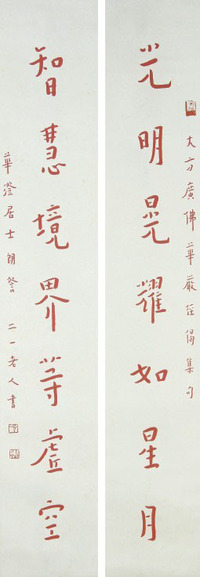 大方廣佛華嚴經偈集句
光明晃耀如星月
智慧境界等虛空
華澄居士朗詧
二一老人書